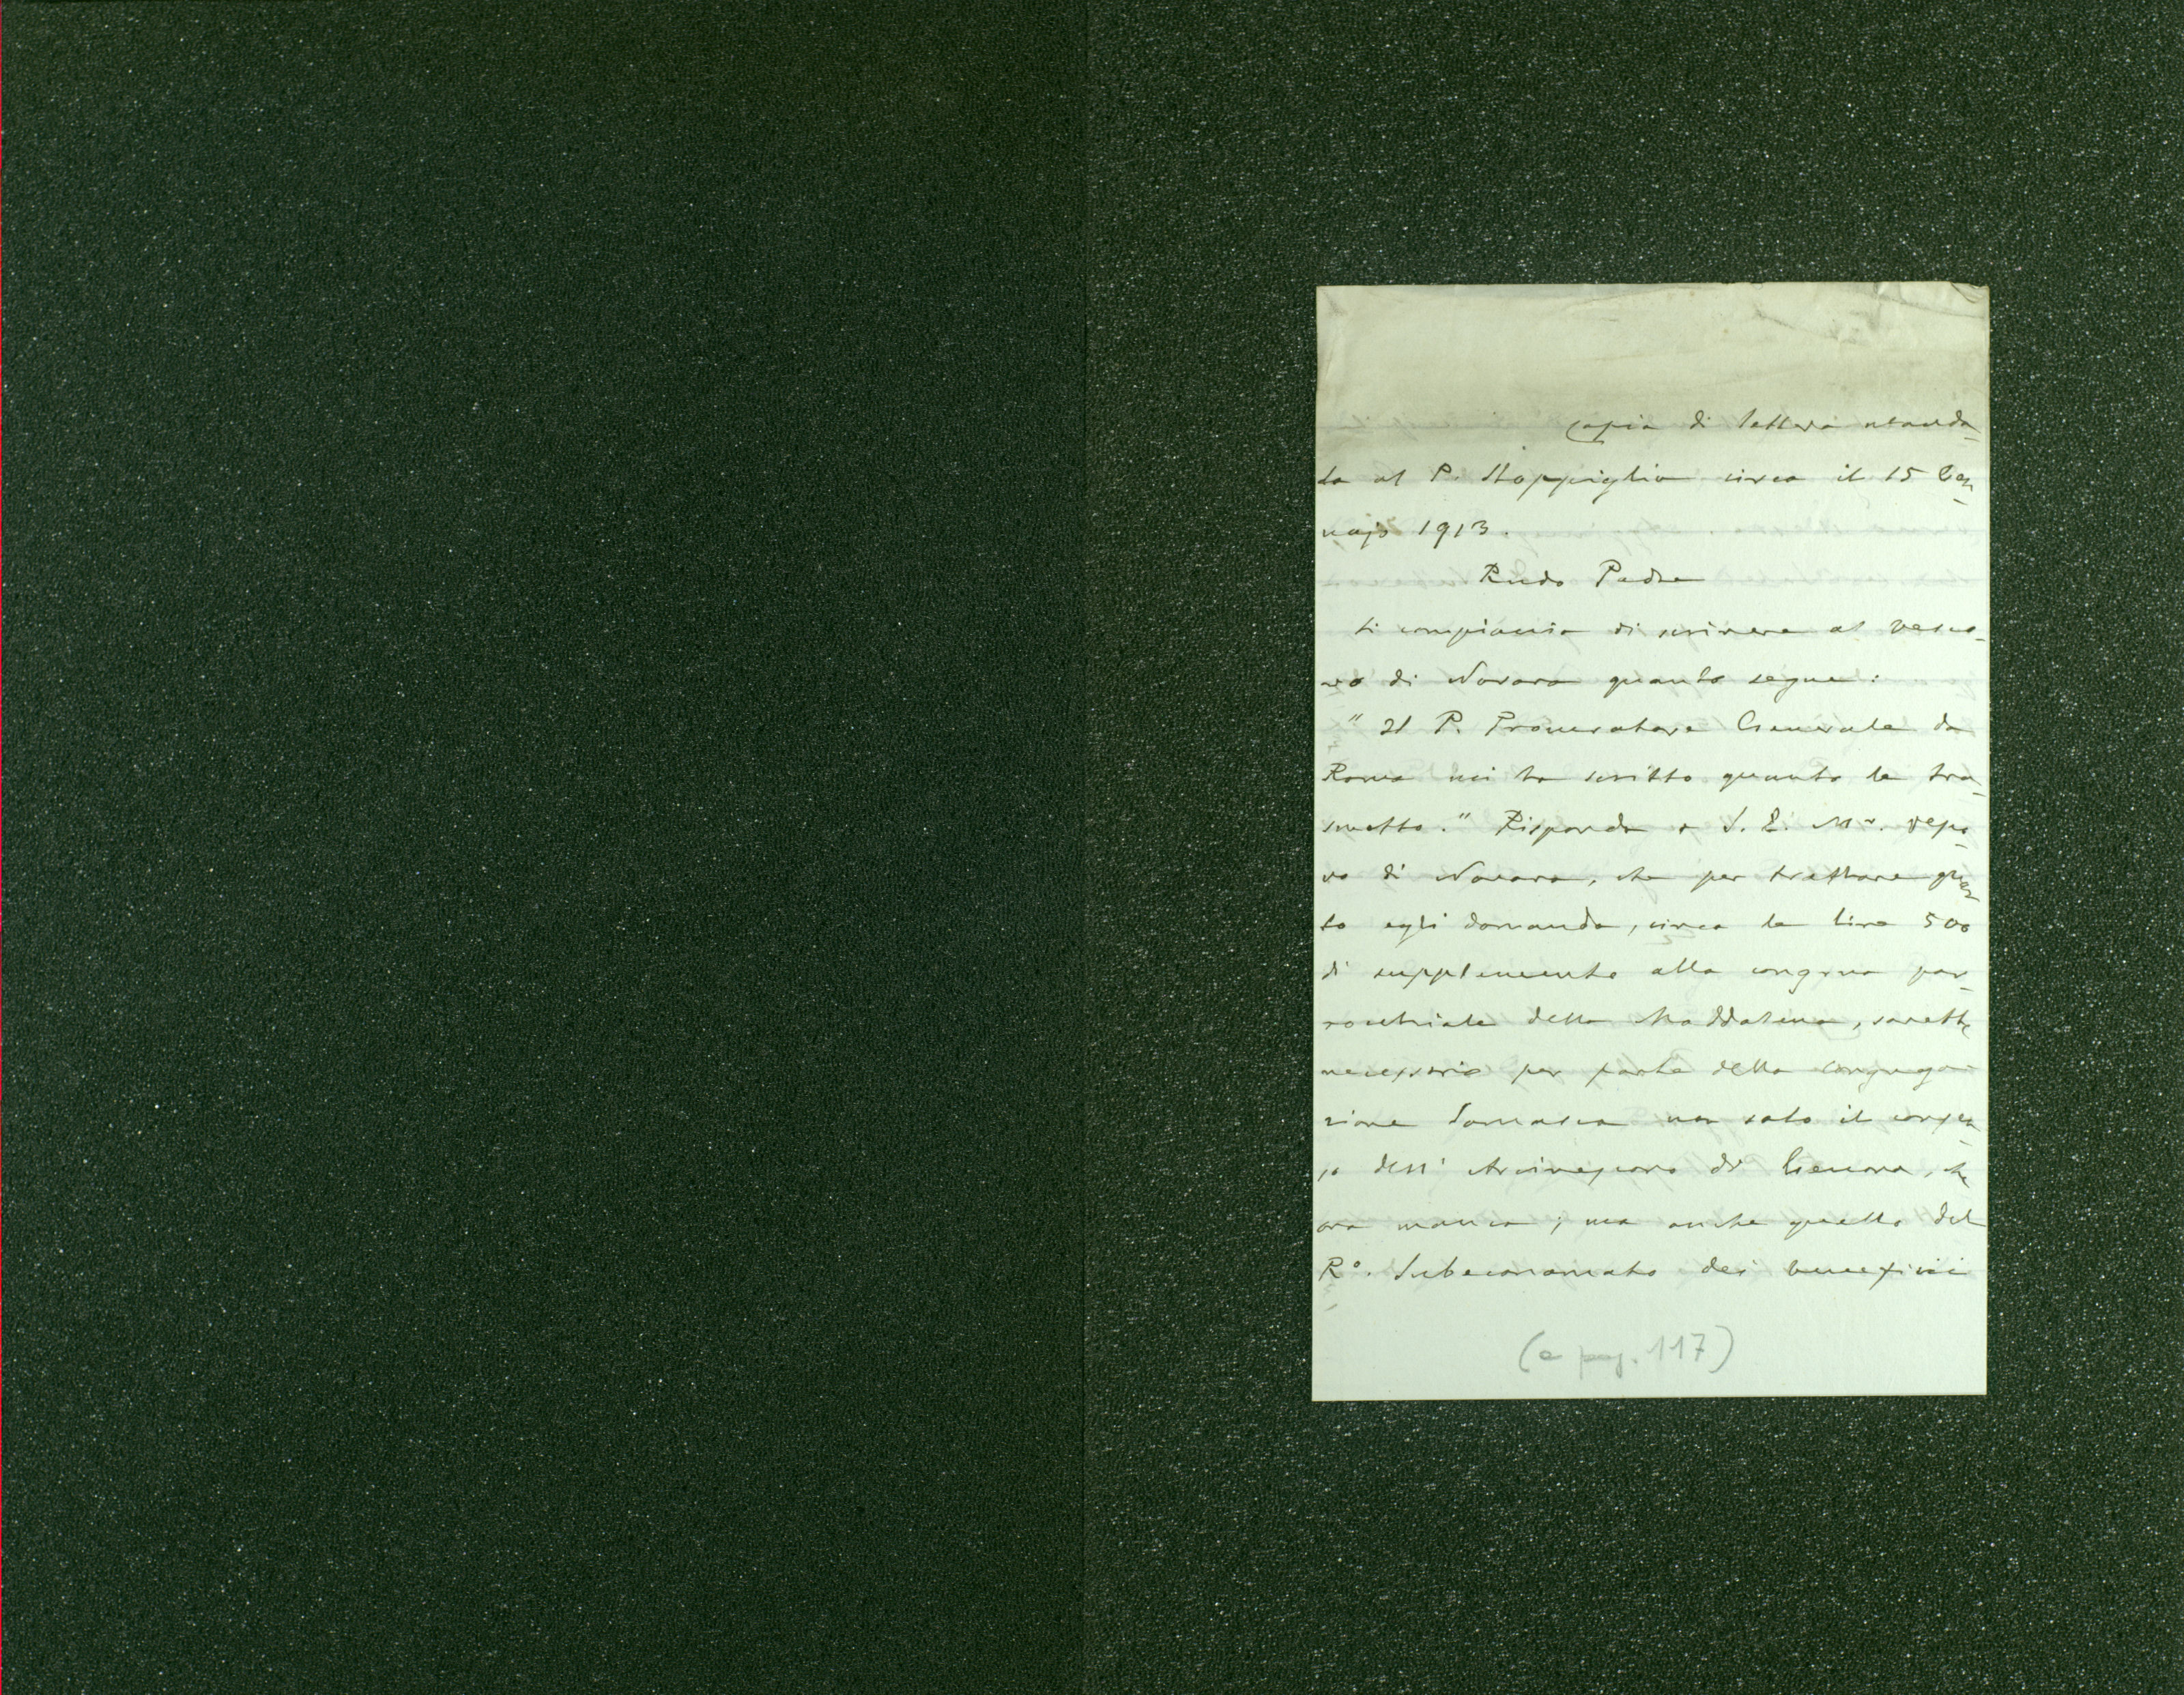 Copia di lettera manda-
ta al P. Stoppiglia circa il 15 Gen-
najo 1913.
Rndo Padre
Si compiaccia di scrivere al Vesco-
vo di Novara quanto segue:
" Il P. Procuratore Generale da
Roma mi ha scritto quanto le tra-
smetto." Risponda a S. E. Mr. Vesco-
vo di Novara, che per trattare quan-
to egli domanda, circa le lire 500
di supplemento alla congrua par-
rocchiale della Maddalena, sarebbe
necessario per parte della Congrega-
zione Somasca non solo il consen-
so dell' Arcivescovo di Genova, che
ora manca; ma anche quello del
R°. Subeconomato dei benefici
(a pag. 117)